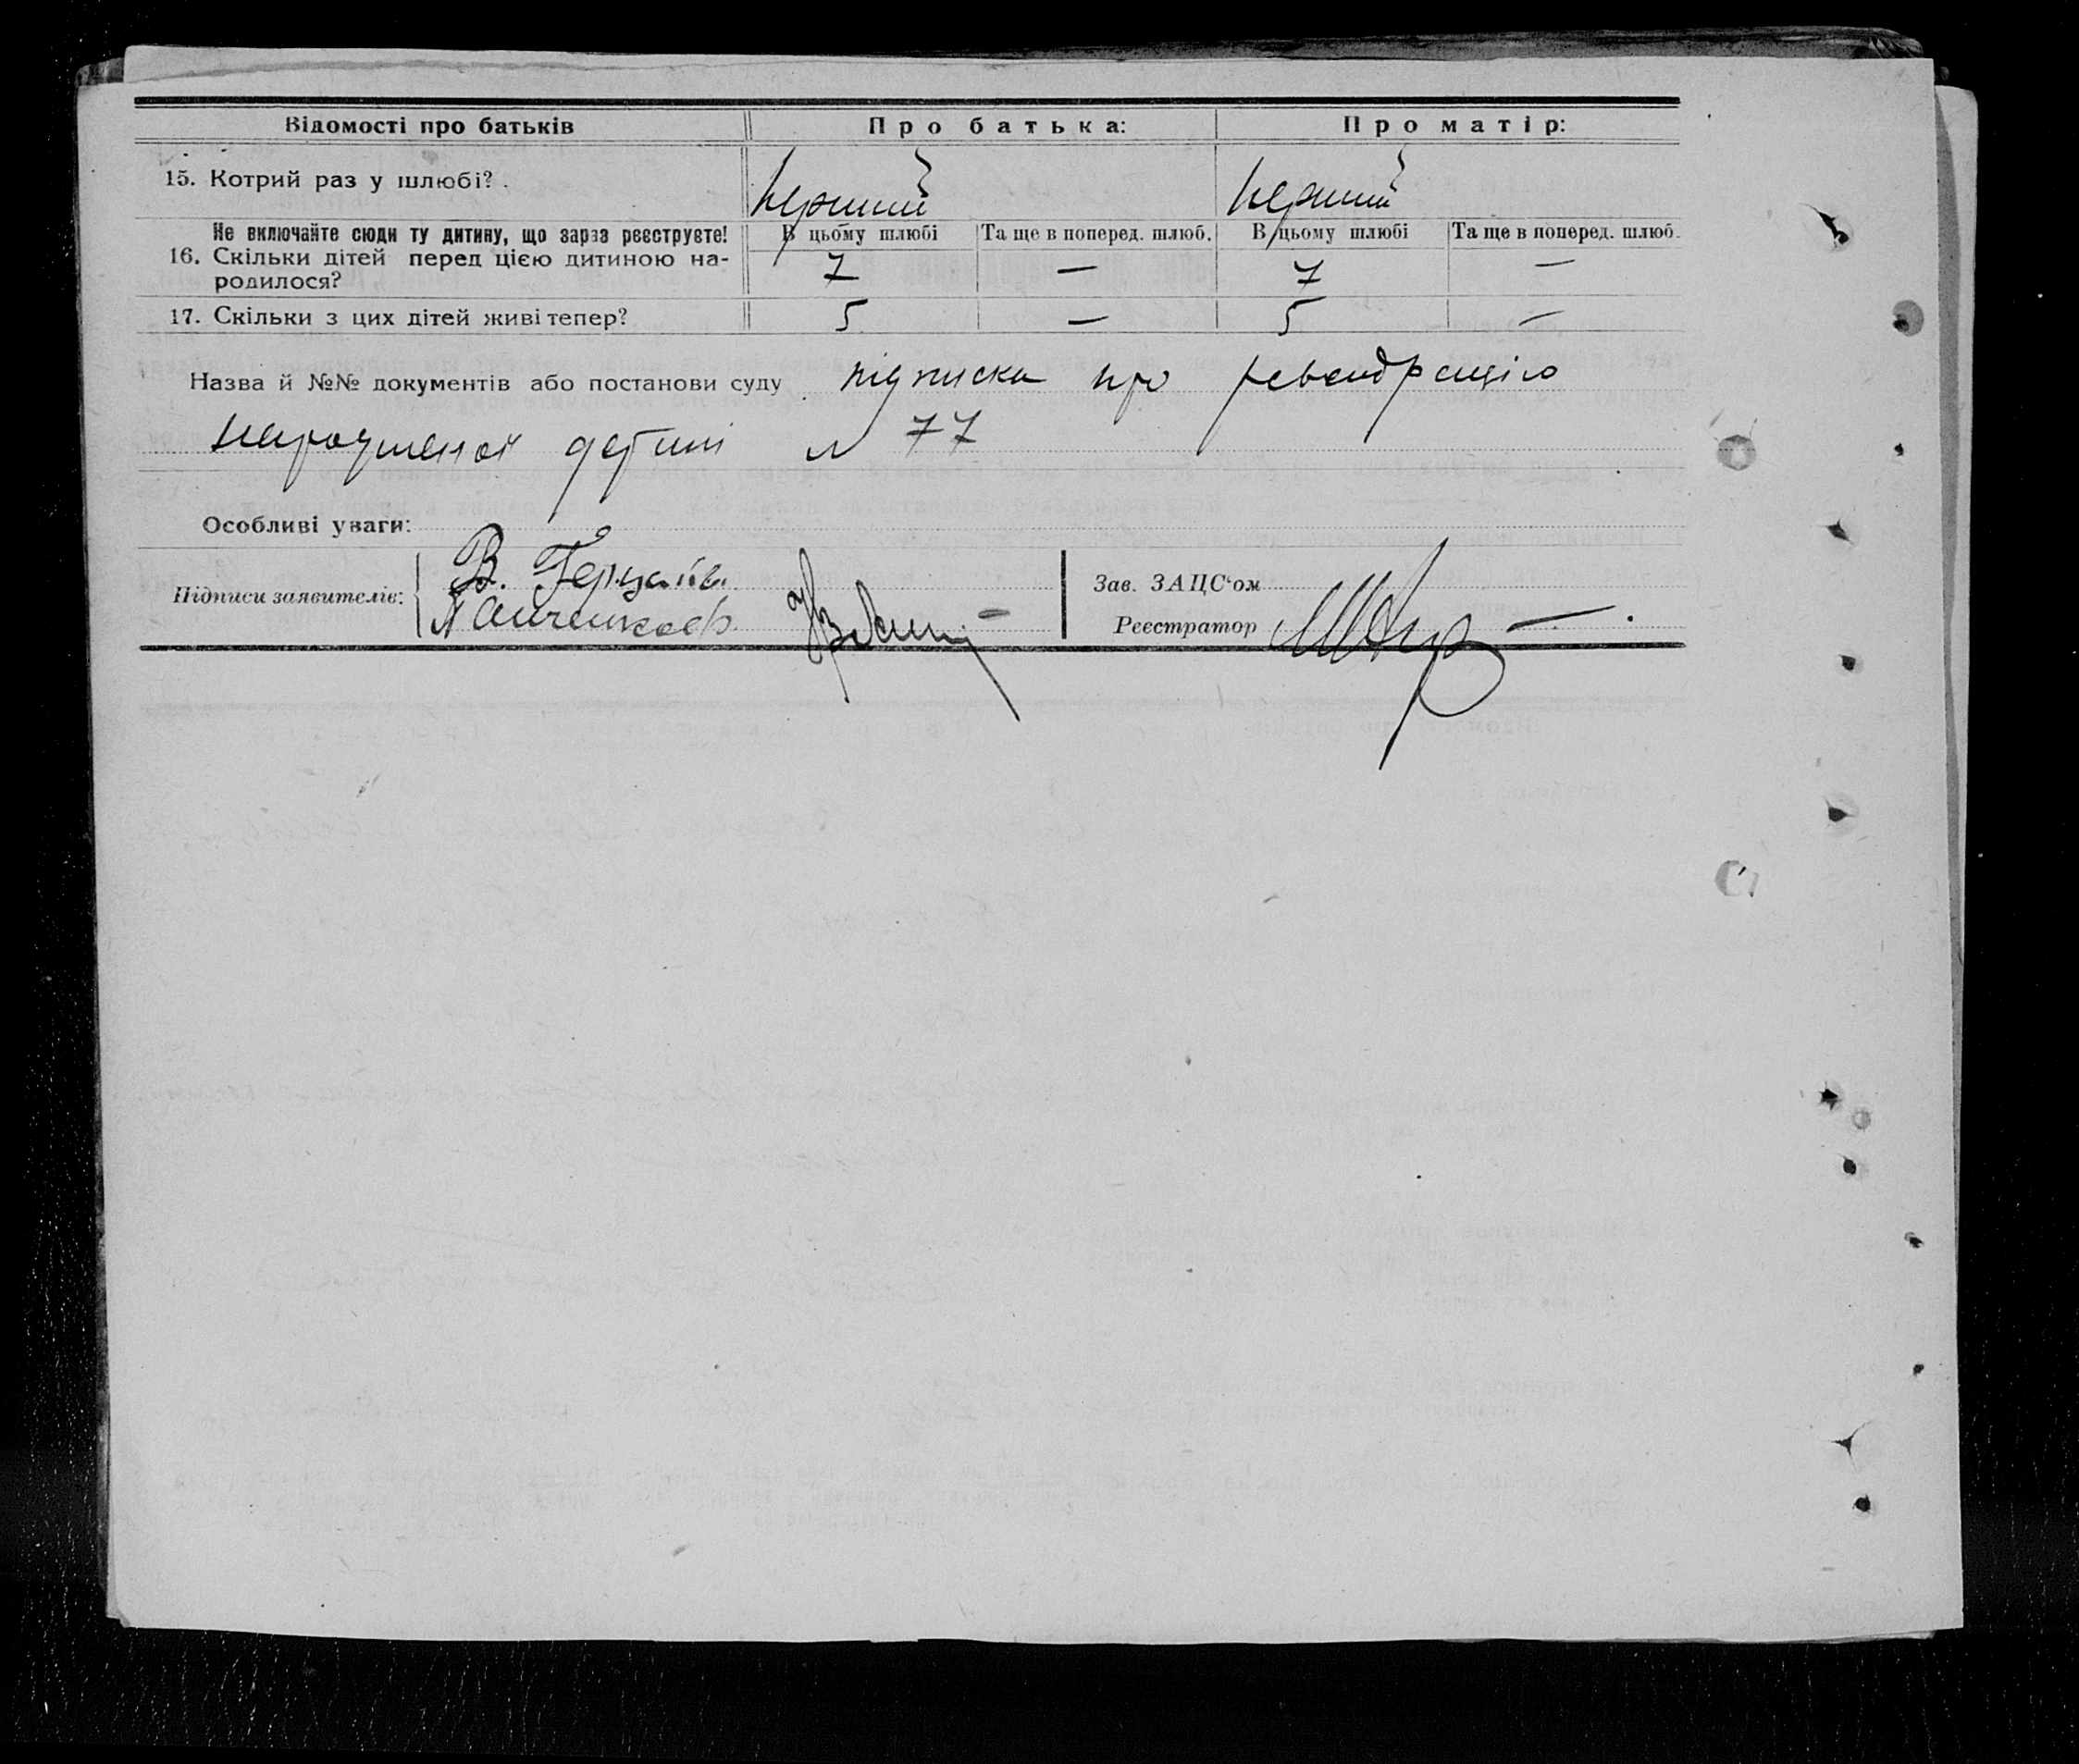 Відомості про батьків Про батька: Про матір:
15. Котрий раз у шлюбі? Перший Перший
Не включайте сюди ту дитину, що зараз реєструєте! В цьому шлюбі Та ще в поперед. шлюб. В цьому шлюбі Та ще в поперед. шлюб.
16. Скільки дітей перед цією дитиною на- 7 — 7 —
родилося?
17. Скільки з цих дітей живі тепер? 5 — 5 —
Назва й №№ документів або постанови суду підписка про
77
Особливі уваги:
Підписи заявителів: В. Зав. ЗАЦС‘ом
Реєстратор